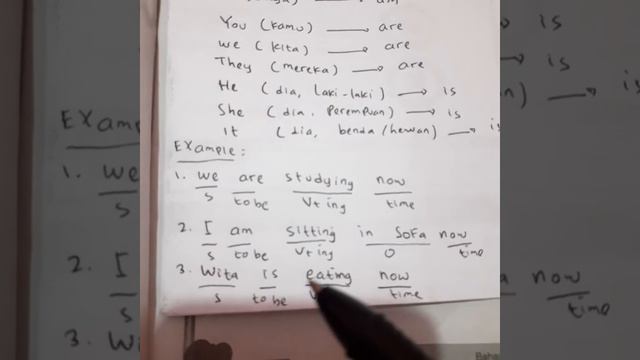 am
You (kamu) → are
we (kita) → are
They (mereka) → are
He (dia, laki-laki) → is
She (dia, Perempuan) → is
It (dia, benda/hewan) → is
Example:
1. we are studying now
s to be V+ing time
2. I am sitting in sofa now
s to be V+ing O time
3. Wita is eating now
s to be time